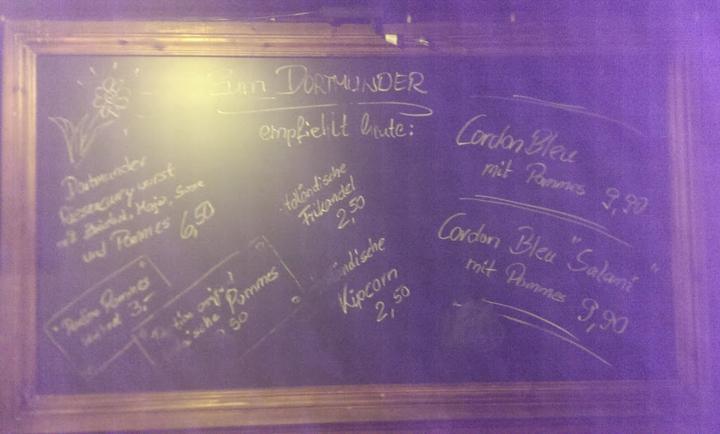 Zum DORTMUNDER
empfiehlt heute:
Dortmunder
Riesencurrywurst
mit Zwiebel, Mayo, Sauce
und Pommes 6,50
Portion Pommes
3,-
Pommes
50
Holländische
Frikandel
2,50
ländische
Kipcorn
2,50
Cordon Bleu
mit Pommes 9,90
Cordon Bleu "Salami"
mit Pommes
9,90